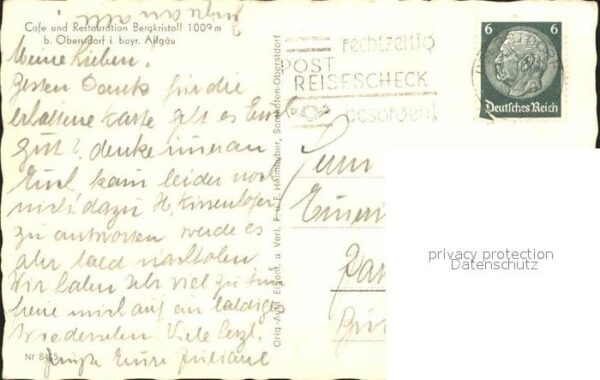 Cafe und Restauration Bergkristall 1009 m
b. Oberstdorf i. bayr. Allgäu
Meine Lieben.
Besten Dank für die
erhaltene Karte geht es Euch
gut?, denke immer an
Euch, kam leider noch
nicht dazu H.
zu antworten werde es
aber bald nachholen
Wir haben sehr viel zu tun
freue mich auf ein baldiges
Wiedersehen. Viele herzl.
Grüße Eure Juliane
Nr 8415
Orig.-Aufn. Eigent. u. Verl. F. u. E. Heimhuber, Sonthofen-Oberstdorf
rechtzeitig
POST
REISESCHECK
besorgen!
6 6
Deutsches Reich
privacy protection
Datenschutz